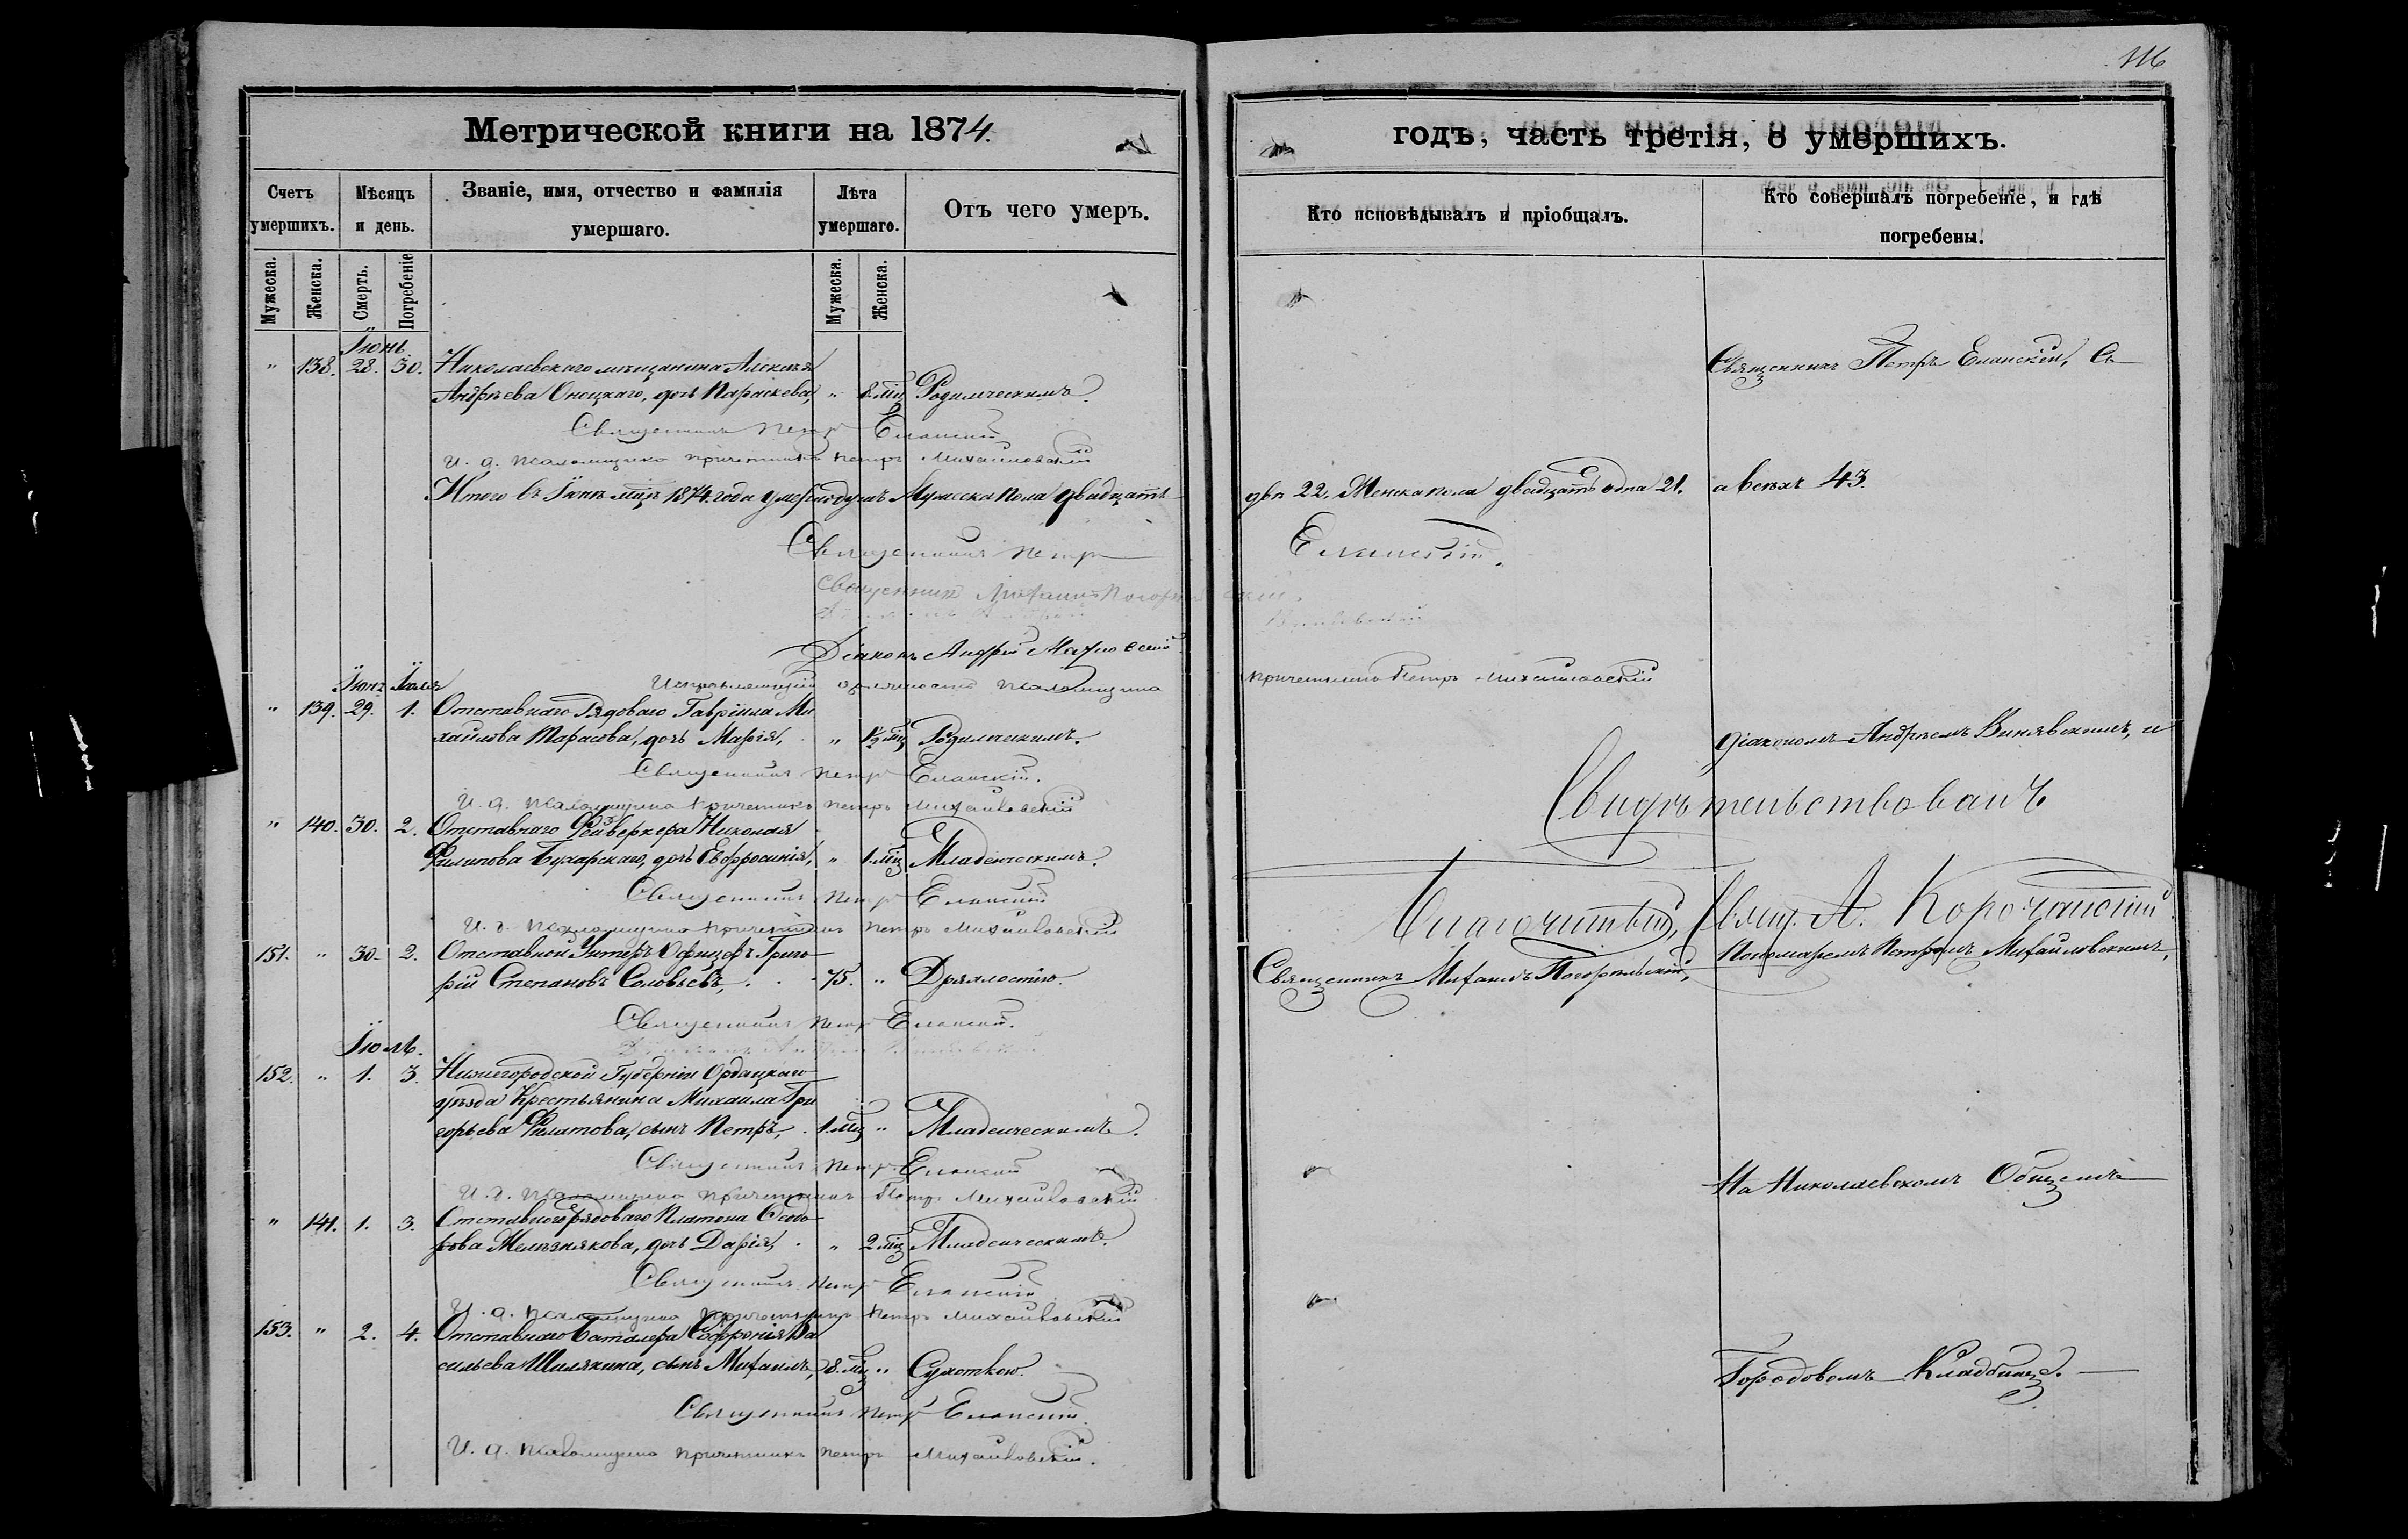 116
Метрической книги на 1874.
годъ, часть третія, о умершихъ.
Счетъ умершихъ.
Мѣсяцъ и день.
Званіе, имя, отчество и фамилія умершаго.
Лѣта умершаго.
Отъ чего умеръ.
Кто исповѣдывалъ и пріобщалъ.
Кто совершалъ погребеніе, и гдѣ погребены.
Мужеска. Женска. Смерть. Погребеніе Мужеска. Женска.
Іюнь
" 138. 28. 30. Николаевскаго мѣщанина Алексѣя
Андрѣева Оноцкаго, дочь Параскева, " 8 мц Родимческимъ.
Священникъ Петръ Еланскій, Съ
Священникъ Петръ Еланскій
И. д. псаломщика причетникъ Петръ Михайловскій
Итого въ Іюнѣ мцѣ 1874 года умерло душъ Мужеска пола двадцать
двѣ 22, Женска пола двадцать одна 21. а всѣхъ 43.
Священникъ Петръ Еланскій.
Священникъ Михаилъ Погорѣльскій.
Діаконъ Андрей
Исправляющій должность псаломщика причетникъ Петръ Михайловскій
Іюнь Іюля
" 139. 29. 1. Отставнаго Рядоваго Гавріила Ми
хайлова Тарасова, дочь Марія, " 1½ мц Родимческимъ.
діакономъ Андреемъ Винявскимъ, и
Священникъ Петръ Еланскій.
И. д. псаломщика причетникъ Петръ Михайловскій
Свидѣтельствовалъ
" 140. 30. 2. Отставнаго Фейверкера Николая
Филипова Бухарскаго, дочь Евфросинія, " 1 мц Младенческимъ.
Священникъ Петръ Еланскій
И. д. псаломщика причетникъ Петръ Михайловскій
Благочинный, Свящ. А. Корочанскій
151. " 30. 2. Отставной Унтеръ Офицеръ Григо
рій Степановъ Соловьевъ, 75. " Дряхлостію.
Священникъ Михаилъ Погорѣльскій,
Пономаремъ Петромъ Михайловскимъ,
Священникъ Петръ Еланскій.
Іюль.
152. " 1. 3. Нижегородской Губерніи Ордацкаго
уѣзда Крестьянина Михаила Гри
горьева Филатова, сынъ Петръ, 1 мц " Младенческимъ.
Священникъ Петръ Еланскій
На Николаевскомъ Общемъ
И. д. псаломщика причетникъ Петръ Михайловскій
" 141. 1. 3. Отставного рядоваго Платона Ѳеодо
рова Желѣзнякова, дочь Дарія, " 2 мц Младенческимъ.
Священникъ Петръ Еланскій
И. д. псаломщика причетникъ Петръ Михайловскій
153. " 2. 4. Отставнаго Баталера Софронія Ва
сильева Шилякина, сынъ Михаилъ, 8 мц " Сухоткою.
Городовомъ Кладбищѣ.
Священникъ Петръ Еланскій
И. д. псаломщика причетникъ Петръ Михайловскій.